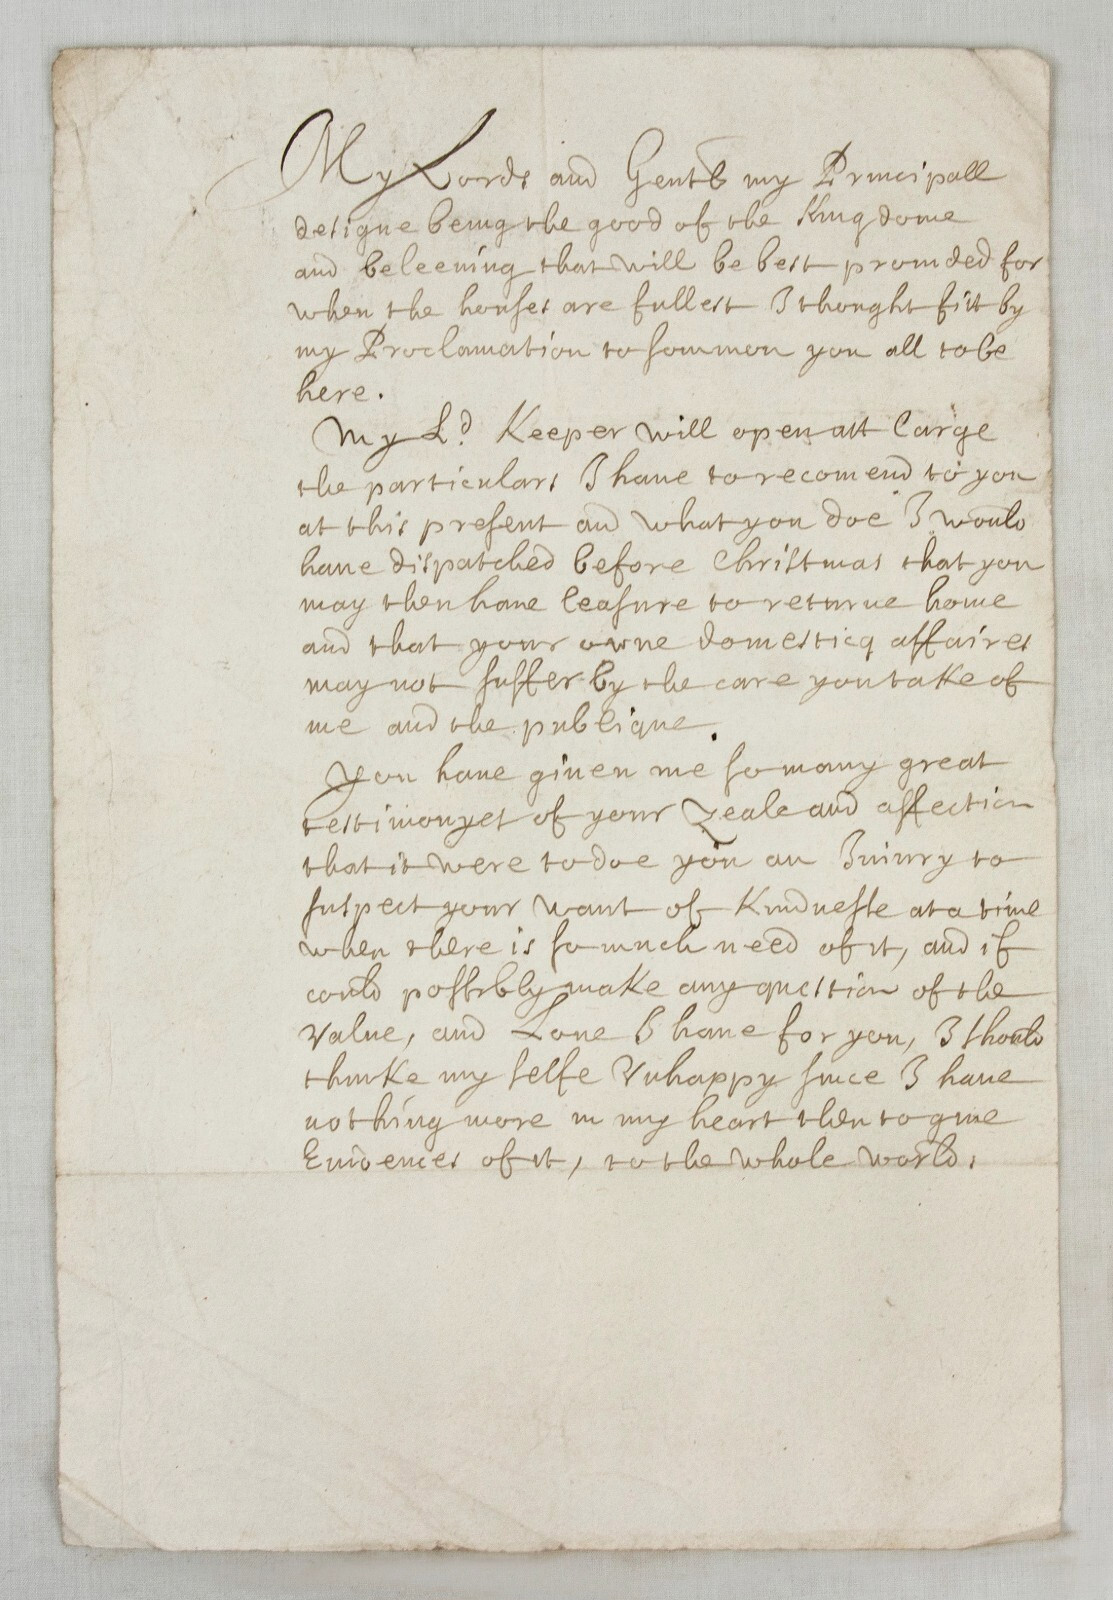 My Lords and Gentls my Principall
designe being the good of the Kingdome
and beleeuing that will be best prouided for
when the houses are fullest I thought fitt by
my Proclamation to sommon you all to be
here.
My Ld Keeper will open att large
the particulars I haue to recomend to you
at this present and what you doe I would
haue dispatched before Christmas that you
may then haue leasure to returne home
and that your owne domesticq affaires
may not suffer by the care you take of
me and the publique.
You haue giuen me so many great
testimonyes of your Zeale and affection
that it were to doe you an Iniury to
suspect your want of Kindnesse at a time
when there is so much need of it, and if
could possibly make any question of the
Value, and Loue I haue for you, I should
thinke my selfe Vnhappy since I haue
nothing more in my heart then to giue
Euidences of it, to the whole world.